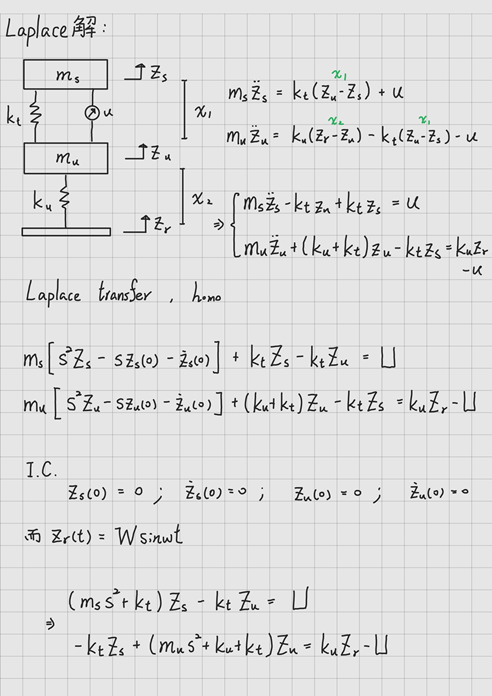 Laplace 解:
m_s
Z_s
k_t
u
x_1
m_s z̈_s = k_t(z_u - z_s) + u
x_1
m_u
Z_u
m_u z̈_u = k_u(z_r - z_u) - k_t(z_u - z_s) - u
x_2
x_1
k_u
x_2
Z_r
⇒ { m_s z̈_s - k_t z_u + k_t z_s = u
m_u z̈_u + (k_u + k_t) z_u - k_t z_s = k_u z_r
-u
Laplace transfer , homo
m_s [ s² Z_s - s z_s(0) - ż_s(0) ] + k_t Z_s - k_t Z_u = U
m_u [ s² Z_u - s z_u(0) - ż_u(0) ] + (k_u + k_t) Z_u - k_t Z_s = k_u Z_r - U
I.C.
z_s(0) = 0 ; ż_s(0) = 0 ; z_u(0) = 0 ; ż_u(0) = 0
而 z_r(t) = W sin wt
(m_s s² + k_t) Z_s - k_t Z_u = U
⇒
-k_t Z_s + (m_u s² + k_u + k_t) Z_u = k_u Z_r - U